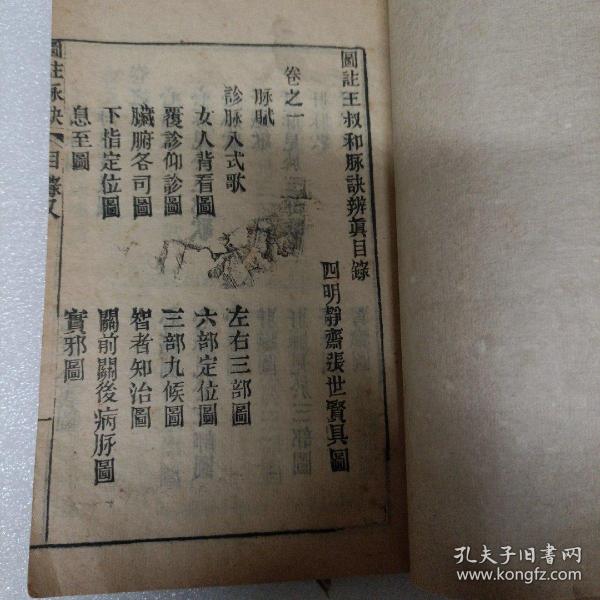 圖註王叔和脉訣辨眞目錄
四明靜齋張世賢具圖
卷之一
脉賦
診脉入式歌
左右三部圖
女人背看圖
六部定位圖
覆診仰診圖
三部九候圖
臟腑各司圖
智者知治圖
下指定位圖
關前關後病脉圖
息至圖
實邪圖
圖註脉訣
目錄
一
孔夫子旧书网
www.kongfz.com